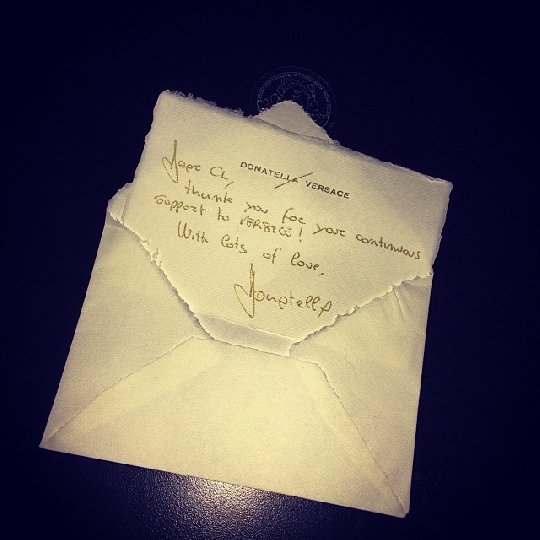 DONATELLA VERSACE
Dear CL,
thank you for your continuous
support to VERSACE!
With lots of love,
Donatella